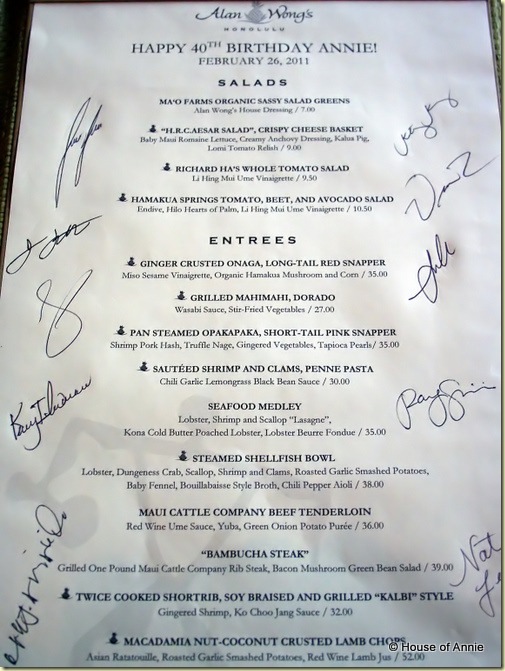 Alan Wong's
HONOLULU
HAPPY 40TH BIRTHDAY ANNIE!
FEBRUARY 26, 2011
SALADS
MA'O FARMS ORGANIC SASSY SALAD GREENS
Alan Wong's House Dressing / 7.00
"H.R.CAESAR SALAD", CRISPY CHEESE BASKET
Baby Maui Romaine Lettuce, Creamy Anchovy Dressing, Kalua Pig,
Lomi Tomato Relish / 9.00
RICHARD HA'S WHOLE TOMATO SALAD
Li Hing Mui Ume Vinaigrette / 9.50
HAMAKUA SPRINGS TOMATO, BEET, AND AVOCADO SALAD
Endive, Hilo Hearts of Palm, Li Hing Mui Ume Vinaigrette / 10.50
ENTREES
GINGER CRUSTED ONAGA, LONG-TAIL RED SNAPPER
Miso Sesame Vinaigrette, Organic Hamakua Mushroom and Corn / 35.00
GRILLED MAHIMAHI, DORADO
Wasabi Sauce, Stir-Fried Vegetables / 27.00
PAN STEAMED OPAKAPAKA, SHORT-TAIL PINK SNAPPER
Shrimp Pork Hash, Truffle Nage, Gingered Vegetables, Tapioca Pearls/ 35.00
SAUTÉED SHRIMP AND CLAMS, PENNE PASTA
Chili Garlic Lemongrass Black Bean Sauce / 30.00
SEAFOOD MEDLEY
Lobster, Shrimp and Scallop "Lasagne",
Kona Cold Butter Poached Lobster, Lobster Beurre Fondue / 35.00
STEAMED SHELLFISH BOWL
Lobster, Dungeness Crab, Scallop, Shrimp and Clams, Roasted Garlic Smashed Potatoes,
Baby Fennel, Bouillabaisse Style Broth, Chili Pepper Aioli / 38.00
MAUI CATTLE COMPANY BEEF TENDERLOIN
Red Wine Ume Sauce, Yuba, Green Onion Potato Purée / 36.00
"BAMBUCHA STEAK"
Grilled One Pound Maui Cattle Company Rib Steak, Bacon Mushroom Green Bean Salad / 39.00
Nat
TWICE COOKED SHORTRIB, SOY BRAISED AND GRILLED "KALBI" STYLE
Gingered Shrimp, Ko Choo Jang Sauce / 32.00
MACADAMIA NUT-COCONUT CRUSTED LAMB CHOPS
Asian Ratatouille, Roasted Garlic Smashed Potatoes, Red Wine Lamb Jus / 52.00
© House of Annie